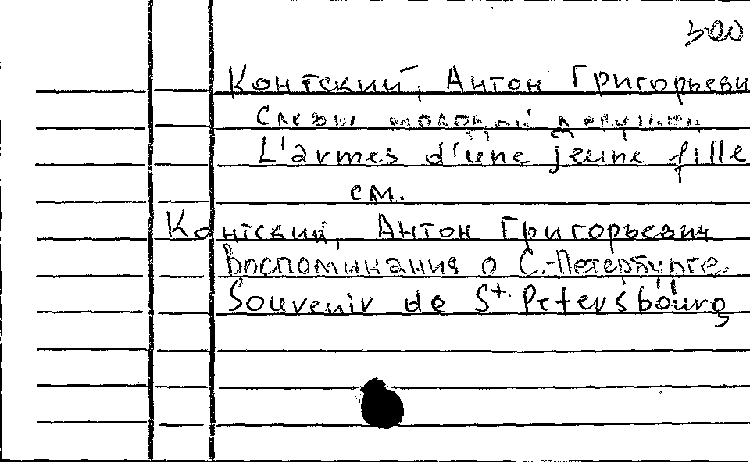 300
Контский, Антон Григорьеви
Слезы молодой девушки
L'armes d'une jeune fille
см.
Контский, Антон Григорьевич
Воспоминания о С.-Петербурге.
Souvenir de St. Petersbourg